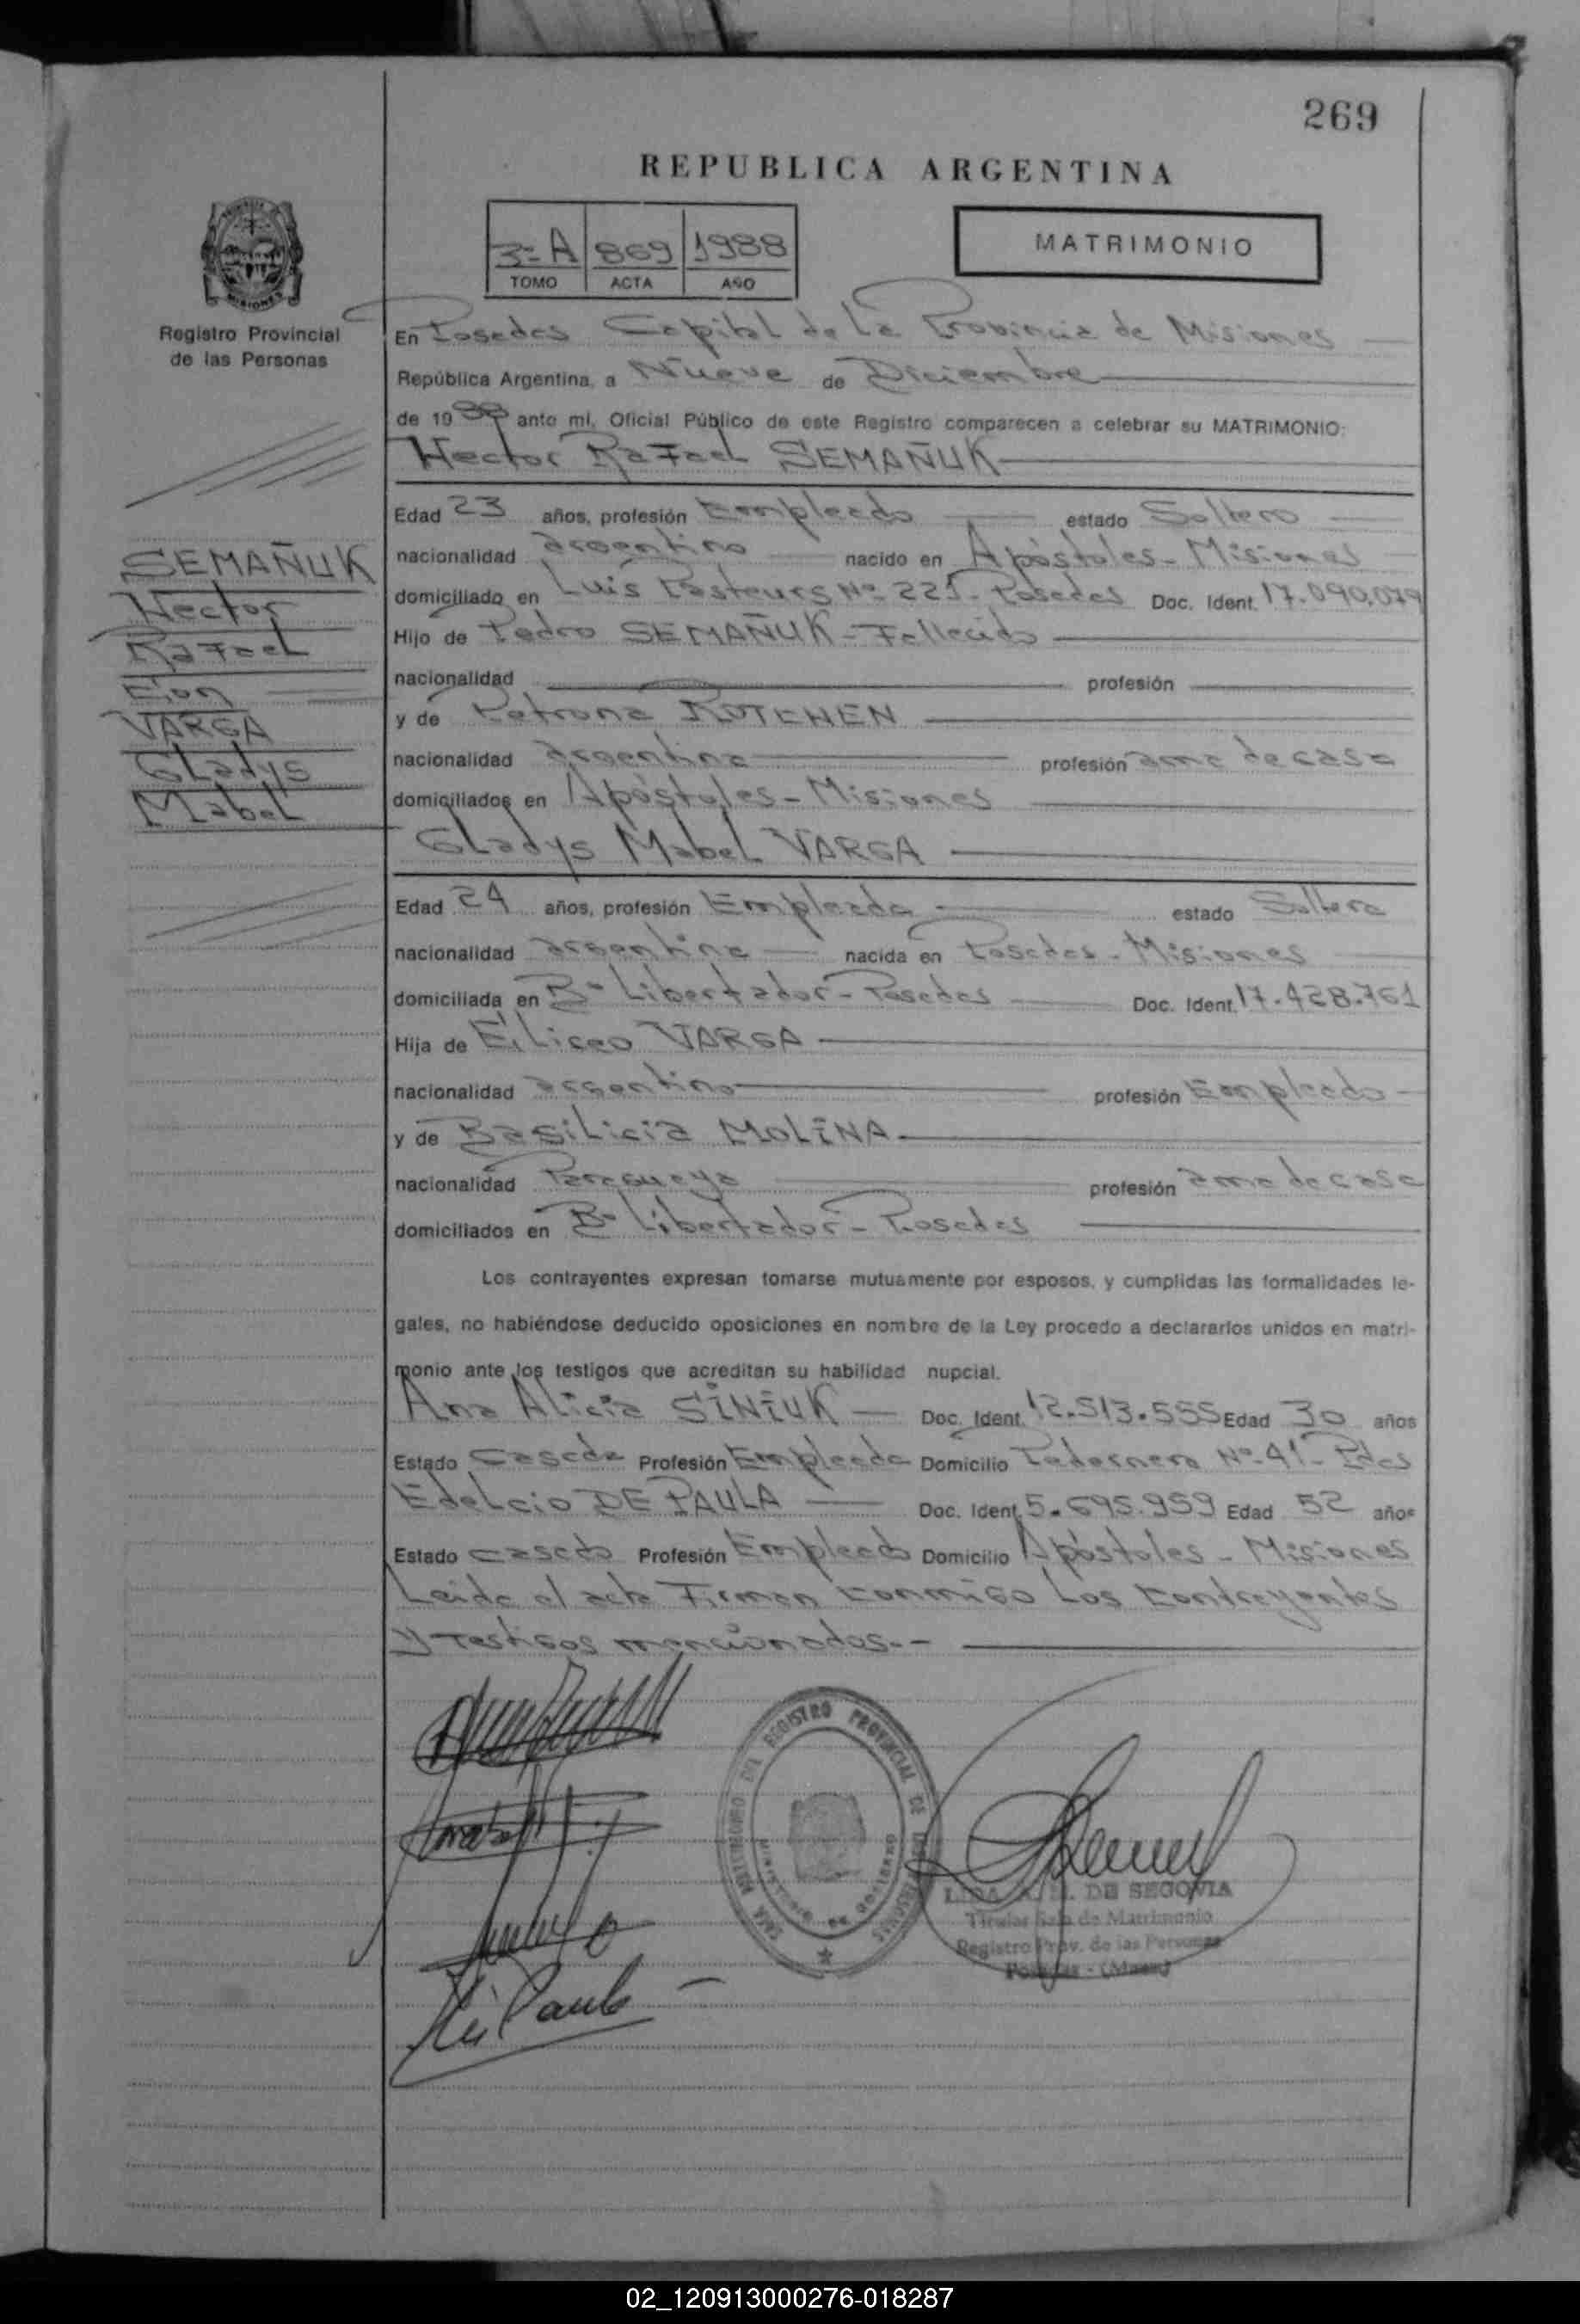 269
REPUBLICA ARGENTINA
3-A 869 1988
TOMO ACTA AÑO
MATRIMONIO
Registro Provincial
de las Personas
En Posadas Capital de La Provincia de Misiones
República Argentina, a Nueve de Diciembre
de 1988 ante mi, Oficial Público de este Registro comparecen a celebrar su MATRIMONIO:
Hector Rafael SEMAÑUK
Edad 23 años, profesión Empleado estado Soltero
nacionalidad argentino nacido en Apóstoles - Misiones
domiciliado en Luis Pasteurs Nº 221 - Posadas Doc. Ident. 17.090.079
Hijo de Pedro SEMAÑUK - Fallecido
nacionalidad profesión
y de Petrona
nacionalidad argentina profesión ama de casa
domiciliados en Apóstoles - Misiones
SEMAÑUK
Hector
Rafael
VARGA
Gladys
Mabel
Gladys Mabel VARGA
Edad 24 años, profesión Empleada estado Soltera
nacionalidad argentina nacida en Posadas - Misiones
domiciliada en Bº Libertador - Posadas Doc. Ident. 17.428.761
Hija de Eliseo VARGA
nacionalidad argentino profesión Empleado
y de Basilicia MOLINA
nacionalidad Paraguaya profesión ama de casa
domiciliados en Bº Libertador - Posadas
Los contrayentes expresan tomarse mutuamente por esposos, y cumplidas las formalidades le-
gales, no habiéndose deducido oposiciones en nombre de la Ley procedo a declararlos unidos en matri-
monio ante los testigos que acreditan su habilidad nupcial.
Ana Alicia SINIUK Doc. Ident. 12.513.555 Edad 30 años
Estado casada Profesión Empleada Domicilio Pedernera Nº 41 - Pdas
Edelcio DE PAULA Doc. Ident. 5.695.959 Edad 52 años
Estado casado Profesión Empleado Domicilio Apóstoles - Misiones
Leida el acta Firman conmigo Los contrayentes
y testigos mencionados.-
SALA MATRIMONIO DEL REGISTRO PROVINCIAL DE LAS PERSONAS
MINISTERIO DE GOBIERNO
DE SEGOVIA
Titular Sala de Matrimonio
Registro Prov. de las Personas
Posadas - (Mnes)
02_120913000276-018287